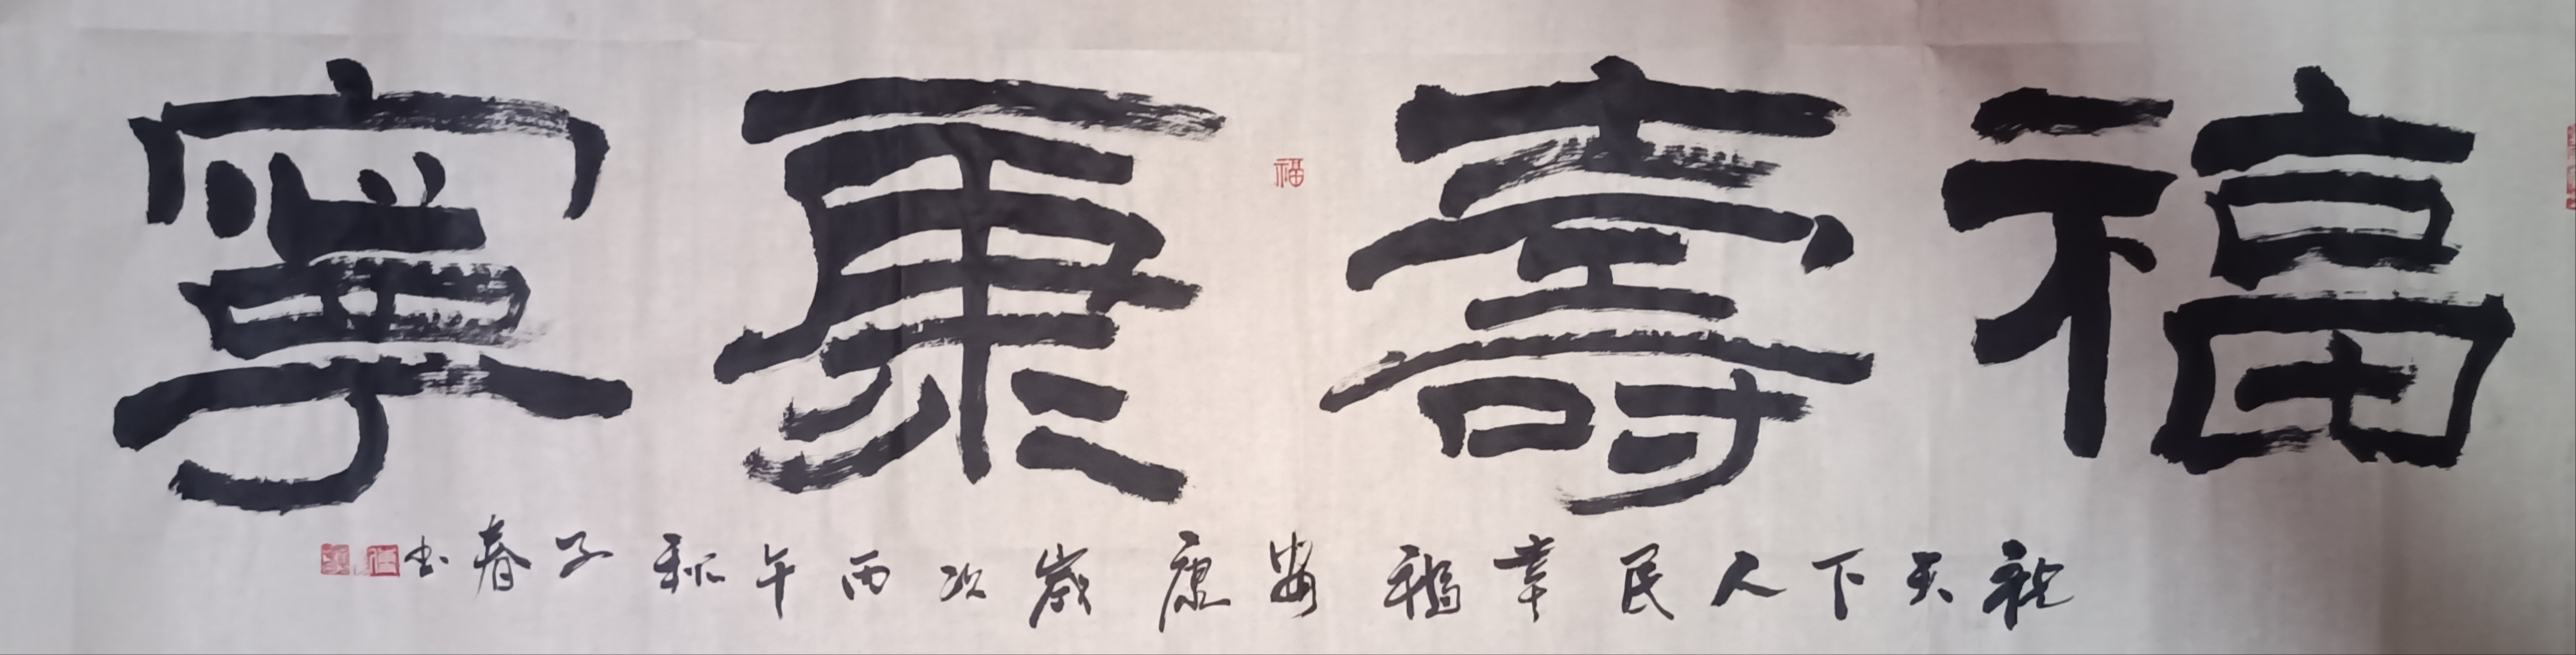 福壽康寧
祝天下人民幸福安康歲次丙午秋子春书
福
任